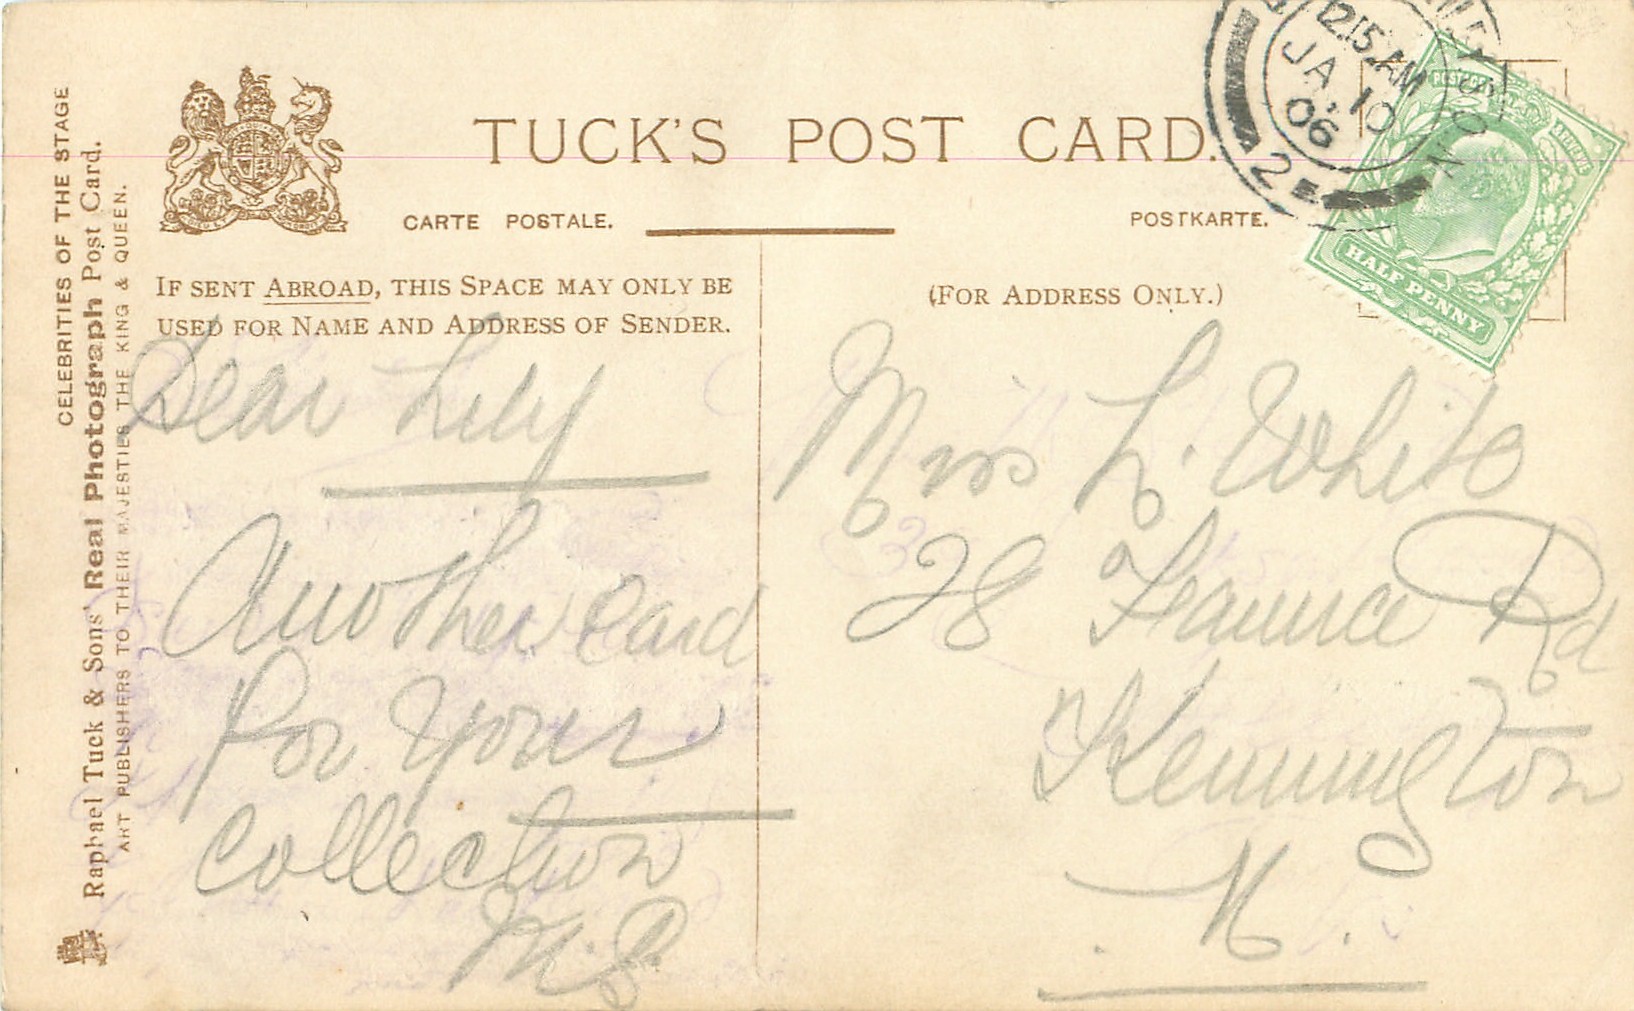 CELEBRITIES OF THE STAGE
Raphael Tuck & Sons' Real Photograph Post Card.
ART PUBLISHERS TO THEIR MAJESTIES THE KING & QUEEN.
TUCK'S POST CARD.
CARTE POSTALE.
POSTKARTE.
IF SENT ABROAD, THIS SPACE MAY ONLY BE
USED FOR NAME AND ADDRESS OF SENDER.
(FOR ADDRESS ONLY.)
12.15 AM
JA 10
06
2
POSTAGE
REVENUE
HALF PENNY
Dear Lily
Another Card
For Your
Collection
Miss L. White
28 Rd
Kennington